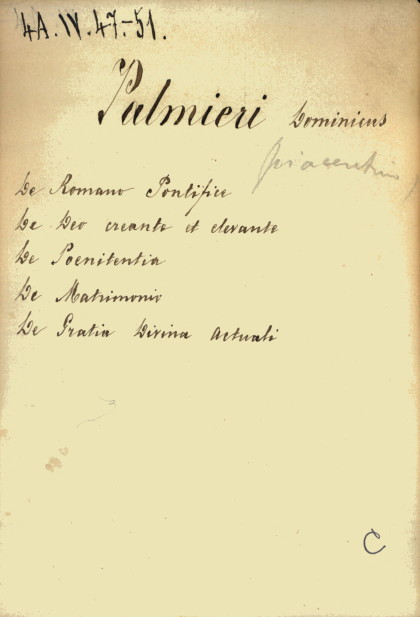 4A.IV.47.-51.
Palmieri Dominicus
piacentino
De Romano Pontifice
De Deo creante et elevante
De Poenitentia
De Matrimonio
De Gratia Divina Actuali
C